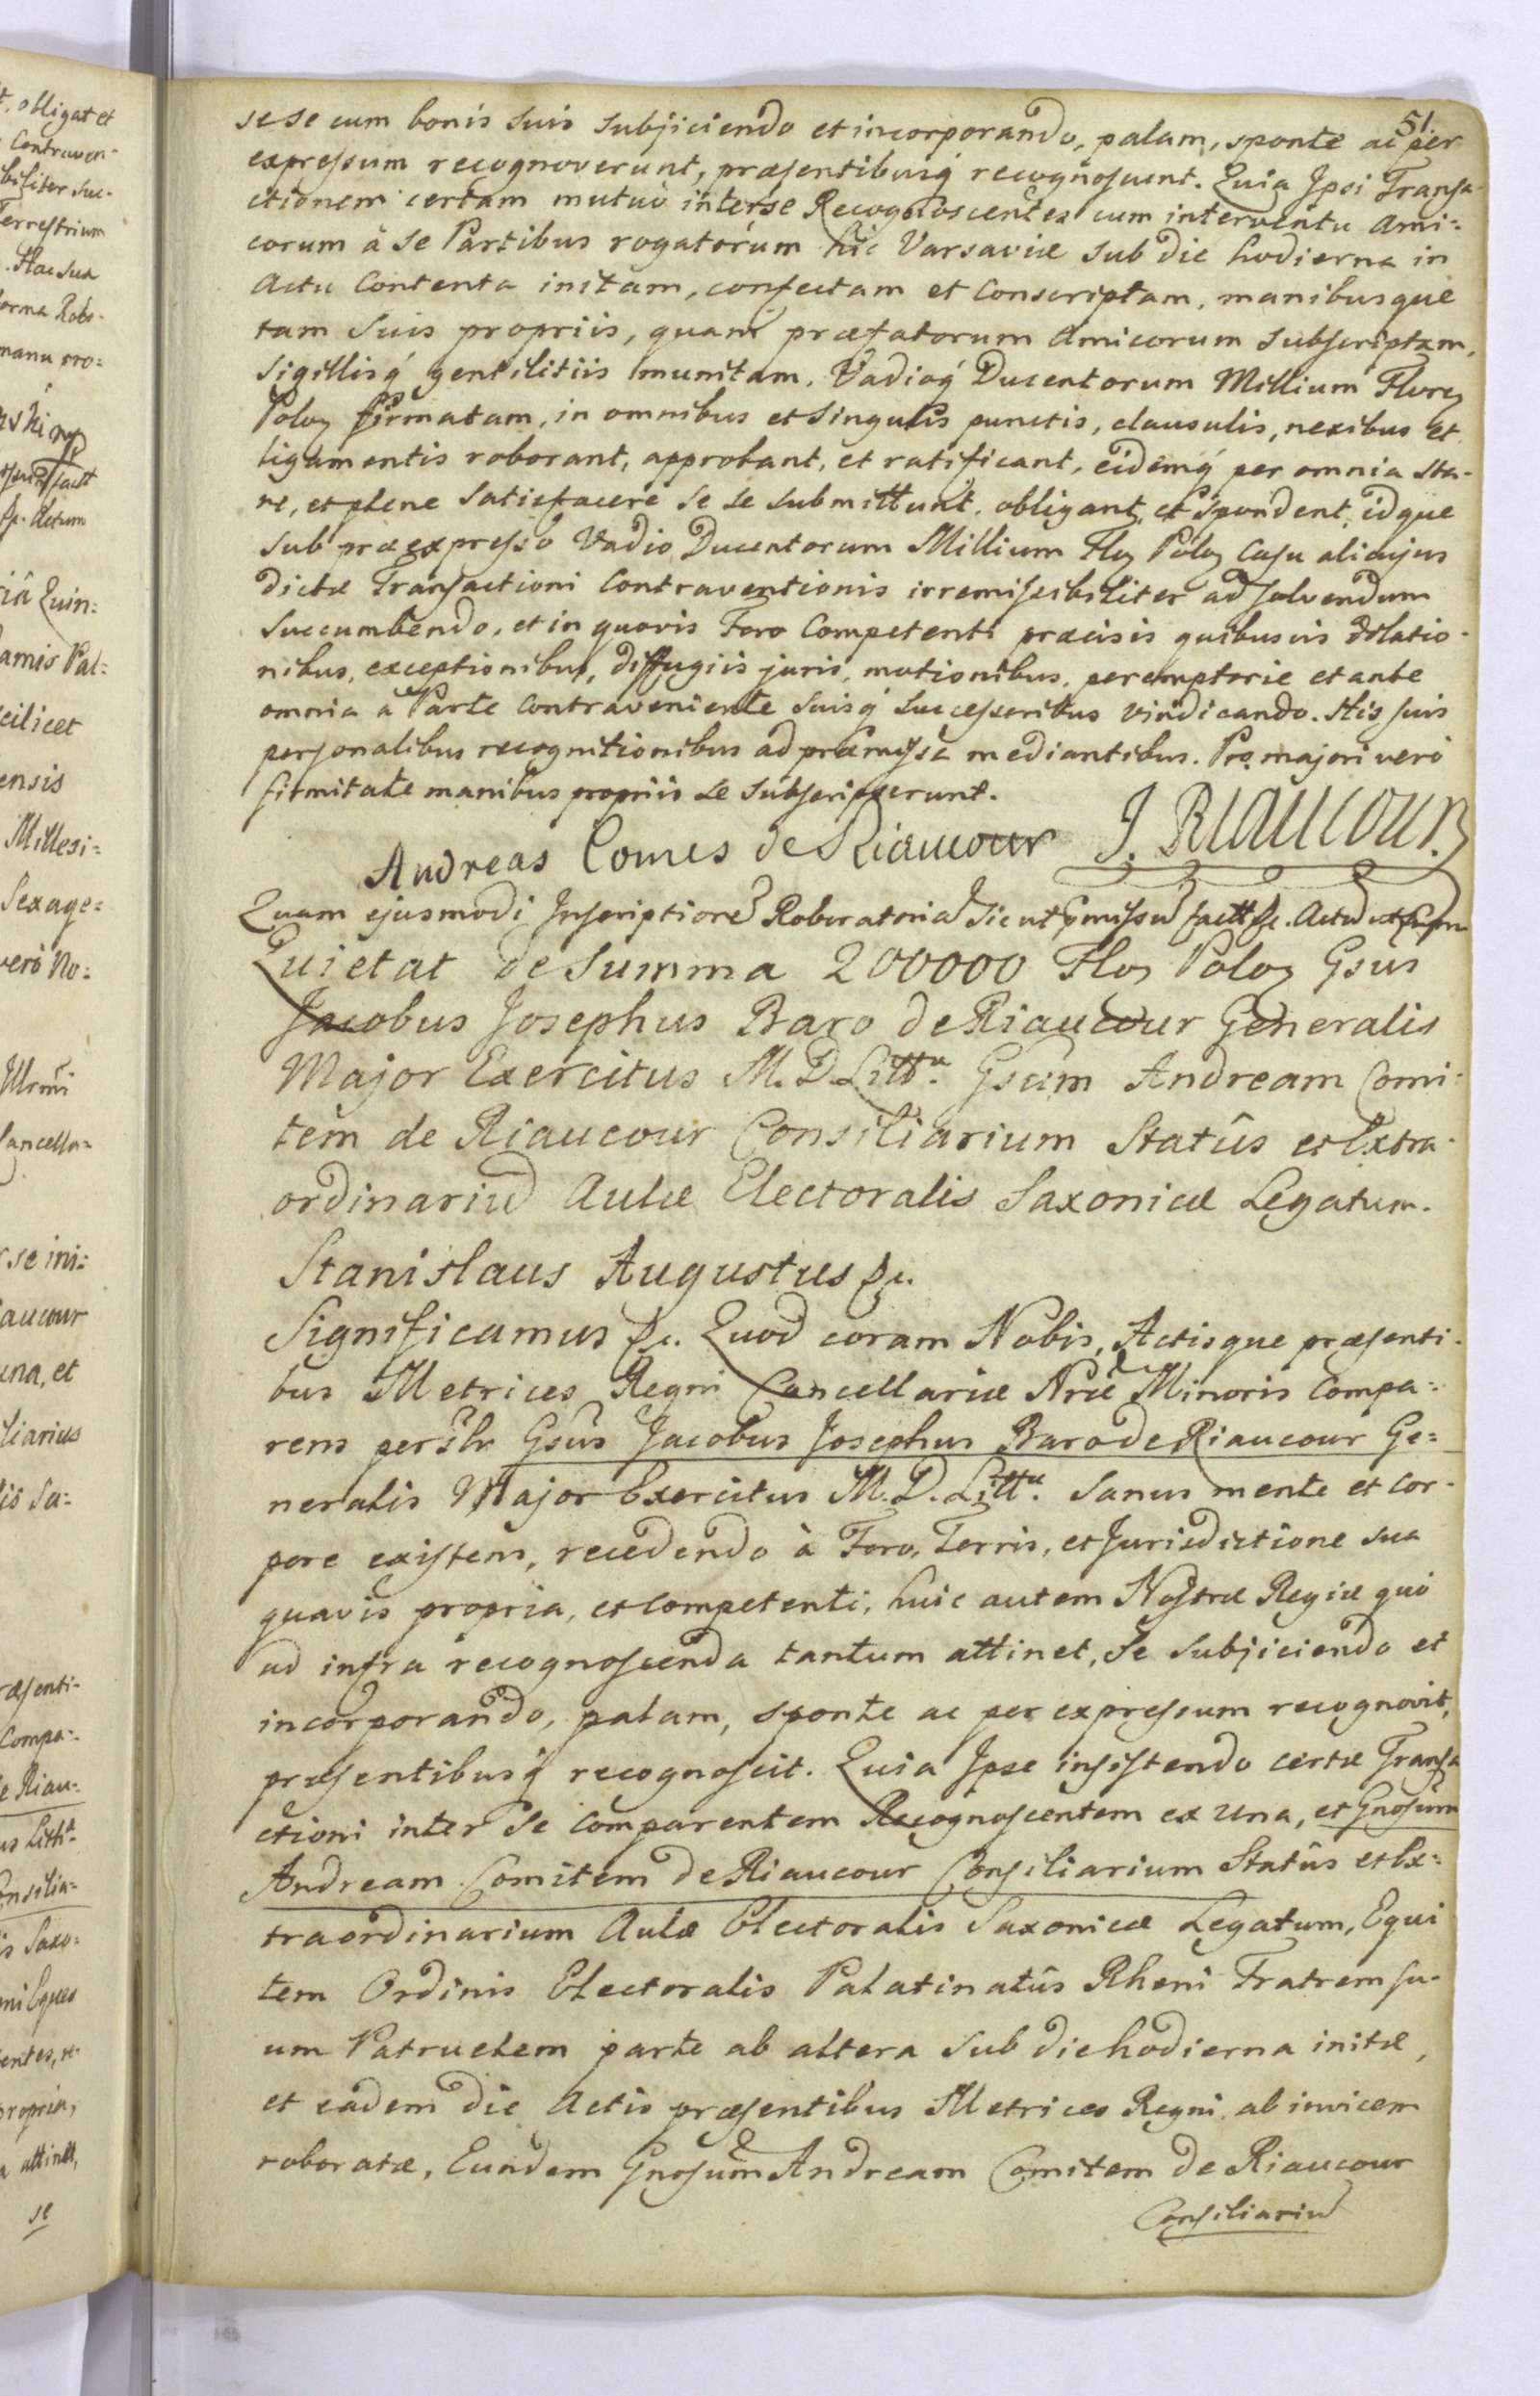 51.
se se cum bonis suis subjiciendo et incorporando, palam, sponte ac per
expressum recognoverunt, præsentibusq́ recognoscunt. Quia Ipsi Transa-
ctionem certam mutuò inter se Recognoscentes cum interventu Ami-
corum à se Partibus rogatorum hic Varsaviæ sub die hodierna in
Actu Contenta initam, confectam et Conscriptam, manibusque
tam suis propriis, quam præfatorum Amicorum subscriptam,
Sigillisq́ gentilitiis munitam, Vadioq́ Ducentorum Millium Floreꝫ
Poloꝫ firmatam, in omnibus et singulis punctis, clausulis, nexibus et
ligamentis roborant, approbant, et ratificant, eidemq́ per omnia sta-
re, et plene satisfacere se se submittunt, obligant, et spondent, idque
sub præexpresso Vadio Ducentorum Millium Floꝫ Poloꝫ Casu alicujus
dictæ Transactioni Contraventionis irremissibiliter ad solvendum
succumbendo, et in quovis Foro Competenti præcisis quibusvis dilatio-
nibus, exceptionibus, diffugiis juris, motionibus, peremptorie et ante
omnia à Parte Contraveniente suisq́ successoribus vindicando. His suis
personalibus recognitionibus ad præmissa mediantibus. Pro majori verò
firmitate manibus propriis se subscripserunt.
Andreas Comes de Riaucour J. Riaucour
Quam ejusmodi Inscriptionem Roboratoriam sicut
Quietat de Summa 200000 Floꝫ Poloꝫ Gsus
Jacobus Josephus Baro de Riaucour Generalis
Major Exercitus M. D. Littu. Gsum Andream Comi-
tem de Riaucour Consiliarium Statûs et Extra-
ordinariu Aulæ Electoralis Saxonicæ Legatum.
Stanislaus Augustus &c.
Significamus &c. Quod coram Nobis, Actisque præsenti-
bus Metrices Regni Cancellariæ Nræ Minoris Compa-
rens persłr Gsus Jacobus Josephus Baro de Riaucour Ge-
neralis Major Exercitus M. D. Littu. Sanus mente et cor-
pore existens, recedendo à Foro, Terris, et Jurisdictione sua
quavis propria, et competenti, huic autem Nostræ Regiæ quò
ad infra recognoscenda tantum attinet, se subjiciendo et
incorporando, palam, sponte ac per expressum recognovit,
præsentibusq́ recognoscit. Quia Ipse insistendo certæ Transa
ctioni inter se Comparentem Recognoscentem ex una, et Gnosum
Andream Comitem de Riaucour Consiliarium Statûs et Ex-
traordinarium Aulæ Electoralis Saxonicæ Legatum, Equi
tem Ordinis Electoralis Palatinatûs Rheni Fratrem su-
um Patruelem parte ab altera sub die hodierna initæ,
et eadem die Actis præsentibus Metrices Regni ab invicem
roboratæ, Eundem Gnosum Andream Comitem de Riaucour
Consiliariu